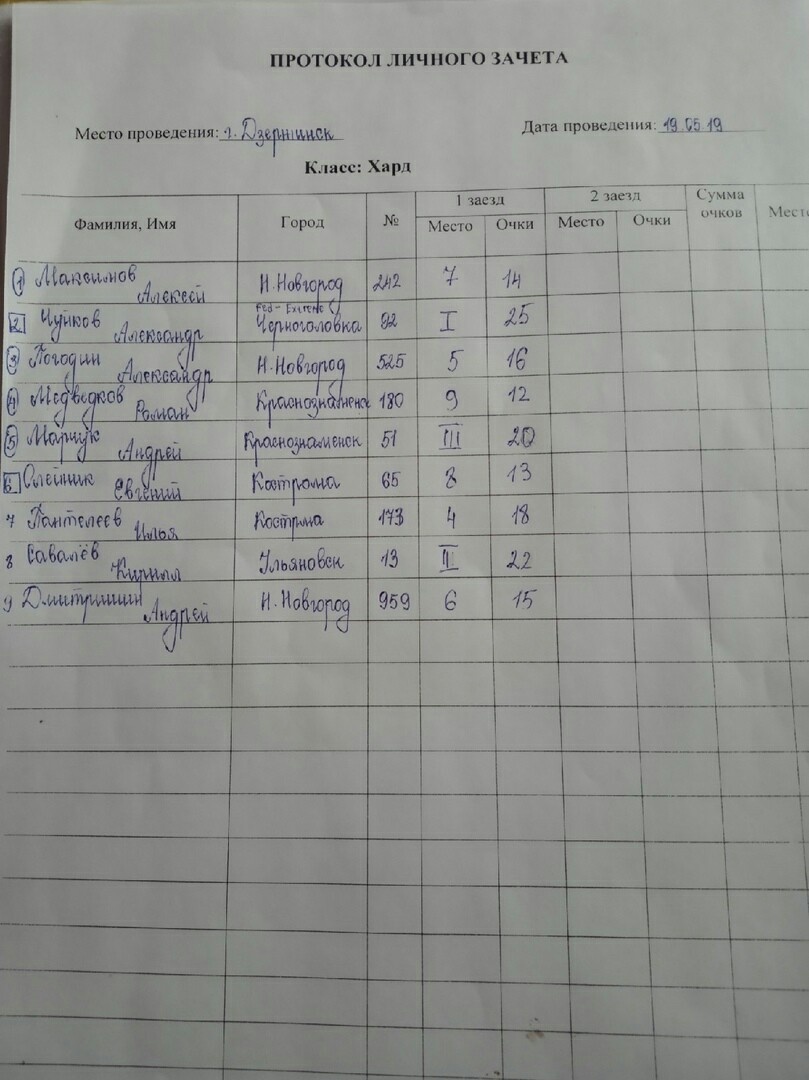 ПРОТОКОЛ ЛИЧНОГО ЗАЧЕТА
Место проведения: г. Дзержинск Дата проведения: 19.05.19
Класс: Хард
Фамилия, Имя Город № 1 заезд 2 заезд Сумма очков Место
Место Очки Место Очки
1 Максимов Алексей Н.Новгород 242 7 14
Red-Extreme
2 Чуйков Александр Черноголовка 92 I 25
3 Погодин Александр Н.Новгород 525 5 16
4 Медведков Роман Краснознаменс 180 9 12
5 Марчук Андрей Краснознаменск 51 III 20
6 Олейник Евгений Кострома 65 8 13
7 Пантелеев Илья Кострма 173 4 18
8 Савалёв Кирилл Ульяновск 13 II 22
9 Дмитришин Андрей Н.Новгород 959 6 15